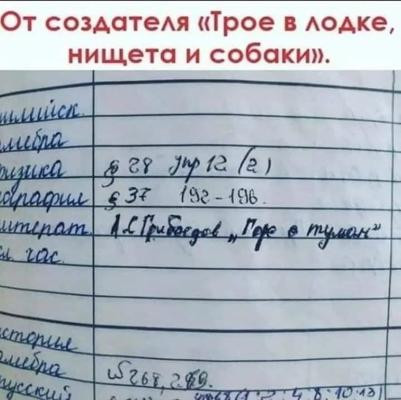 От создателя «Трое в лодке,
нищета и собаки».
глийск.
лгебра
физика § 28 упр 12 (2)
ография § 37 192-196.
итерат. А.С Грибоедов „Горе о туман"
л. час.
стория
лгебра № 268, 269.
усский